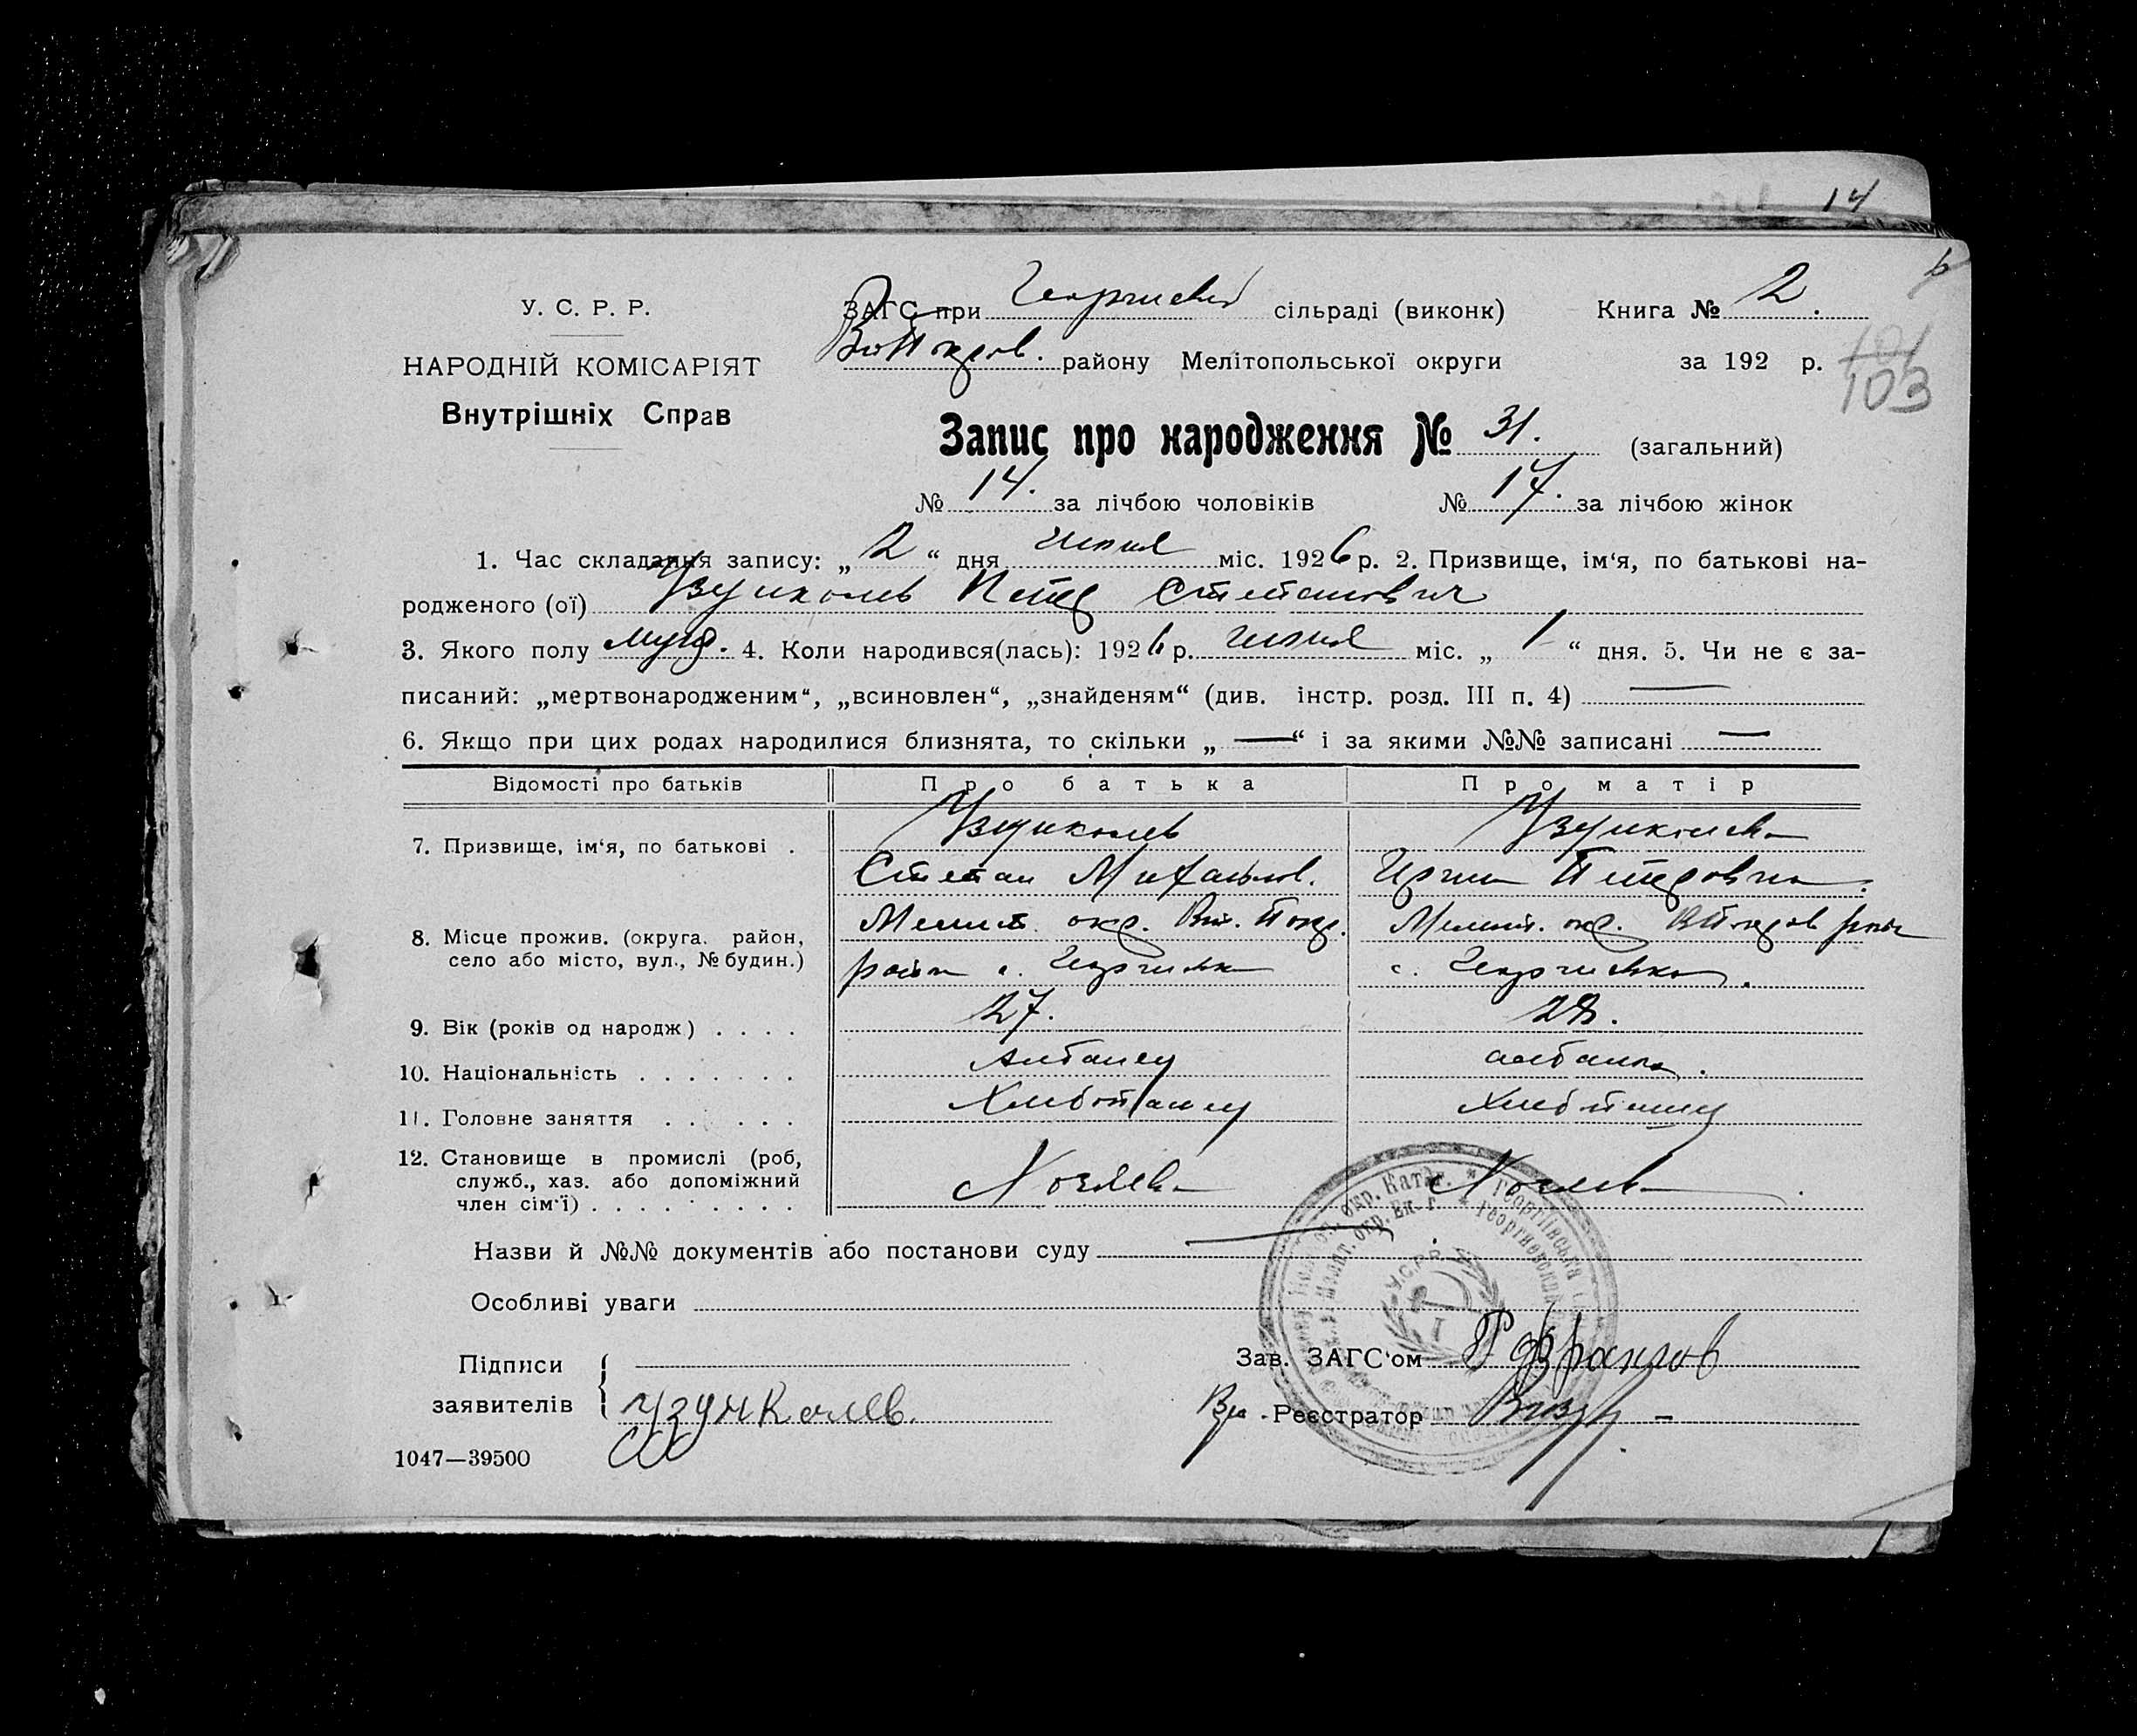 14
У. С. Р. Р.
НАРОДНІЙ КОМІСАРІЯТ
Внутрішніх Справ
ЗАГС при Георгиевск сільраді (виконк) Книга № 2.
району Мелітопольської округи за 192 р.
101
103
Запис про народження № 31. (загальний)
№ 14. за лічбою чоловіків № 17. за лічбою жінок
1. Час складання запису: „ 2 “ дня июня міс. 1926 р. 2. Призвище, ім‘я, по батькові на-
родженого (ої) Узунколев Петр Степанович
3. Якого полу муж. 4. Коли народився(лась): 1926 р. июня міс. „ 1 “ дня. 5. Чи не є за-
писаний: „мертвонародженим“, „всиновлен“, „знайденям“ (див. інстр. розд. III п. 4) —
6. Якщо при цих родах народилися близнята, то скільки „ — “ і за якими №№ записані —
Відомості про батьків Про батька Про матір
7. Призвище, ім‘я, по батькові . Узунколев Узунколева
Степан Михайлов. Ирина Петровна.
8. Місце прожив. (округа. район, Мелит. окр. Вт. Покр. Мелит. окр. ВПокров район
село або місто, вул., № будин.) район с. Георгиевка с. Георгиевка.
9. Вік (років од народж) . . . . 27. 28.
10. Національність . . . . . . . Албанец албанка.
11. Головне заняття . . . . . Хлебопашец Хлебопашец
12. Становище в промислі (роб,
служб., хаз. або допоміжний Хозяева Хозяева
член сім‘ї) . . . . . . . . .
Назви й №№ документів або постанови суду —
Особливі уваги
Підписи
заявителів Узунколев.
Зав. ЗАГС‘ом
Реєстратор
У.С.Р.Р.
1047—39500